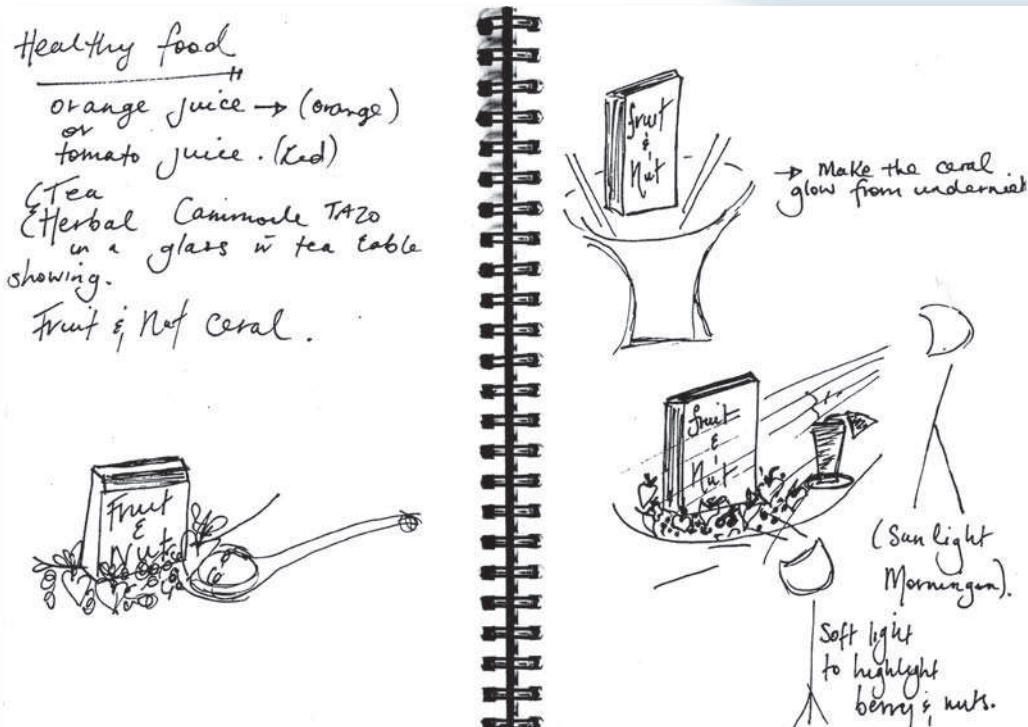 Healthy food
orange juice → (orange)
or
tomato juice. (Red)
(Tea
(Herbal Cammomile TAZO
in a glass in tea table
showing.
Fruit & Nut ceral.
Fruit
&
Nut
fruit
&
Nut
→ Make the ceral
glow from underniet
fruit
&
Nut
(Sun light
Morningsun).
Soft light
to highlight
berry & nuts.